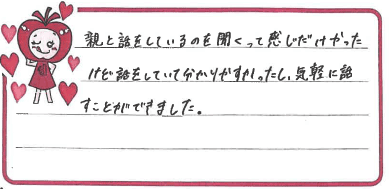 親と話をしているのを聞くって感じだけやった
けど話をしていて分かりやすかったし、気軽に話
すことができました。